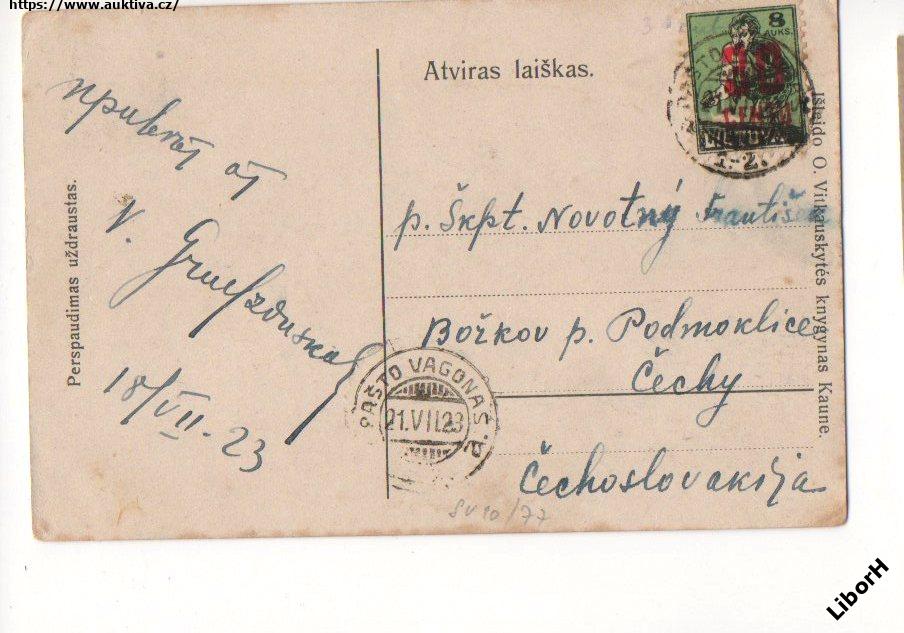 https://www.auktiva.cz/
Atviras laiškas.
8
AUKS.
10
CENTŲ
LIETUVA
Perspaudimas uždraustas.
Išleido O. Vitkauskytės knygynas Kaune.
привѣт от
V.
18/VII-23
p. Škpt. Novotný František
Božkov p. Podmoklice
Čechy
Čechoslovakija
PAŠTO VAGONAS
21.VII.23
LiborH